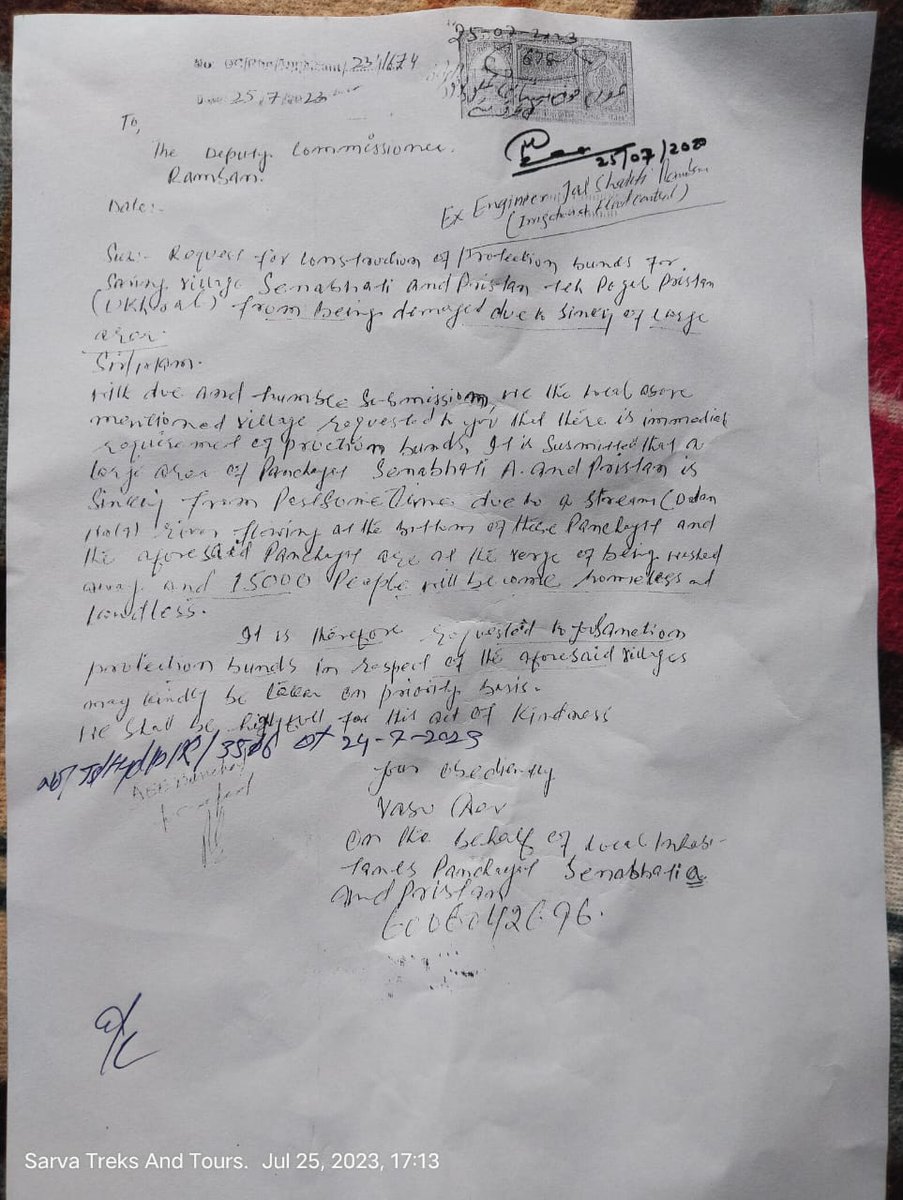 25-07-2023
No 23/1674
25/7/2023
678
To,
The Deputy Commissioner.
Ramban.
25/07/2023
Date:-
Ex Engineer Jal Shakti Ramban
(Irrigation & Flood Control)
Sub:- Request for construction of Protection bunds for
Saving village Senabhati and Pristan teh Pogal Pristan
(Ukhral) from being demaged due to Sinkig of large
area.
Sir/
With due and humble Submission, we the local above
mentioned village requested to you that there is immediat
requiremet of proction bunds. It is Susmitted that a
large area of Panchayat Senabhati A. and Pristan is
Sinkig from Past Some Time due to a Stream (
) River flowing at the bottom of these Panchayat and
the aforesaid Panchayat are at the verge of being washed
away and 15000 People will become homeless and
landless.
It is therefore requested to sanction
protection bunds in respect of the aforesaid villages
may kindly be taken on priority basis.
We shall be for this act of Kindness
24-7-2023
your obediently
On the behalf of Local Inhabi-
tants Panchayat Senabhati a
And Pristan
Sarva Treks And Tours. Jul 25, 2023, 17:13